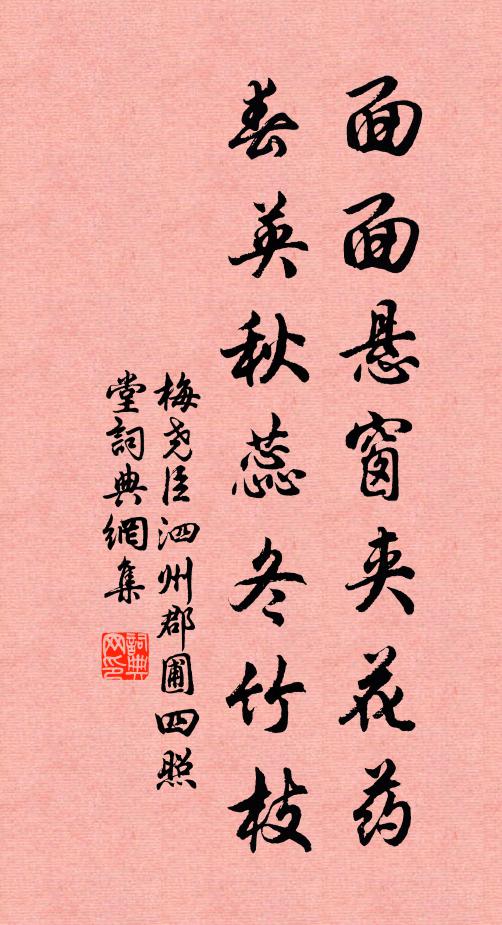 面面悬窗夹花药
春英秋蕊冬竹枝
梅尧臣泗州郡圃四照
堂词典網集
詞典
网印